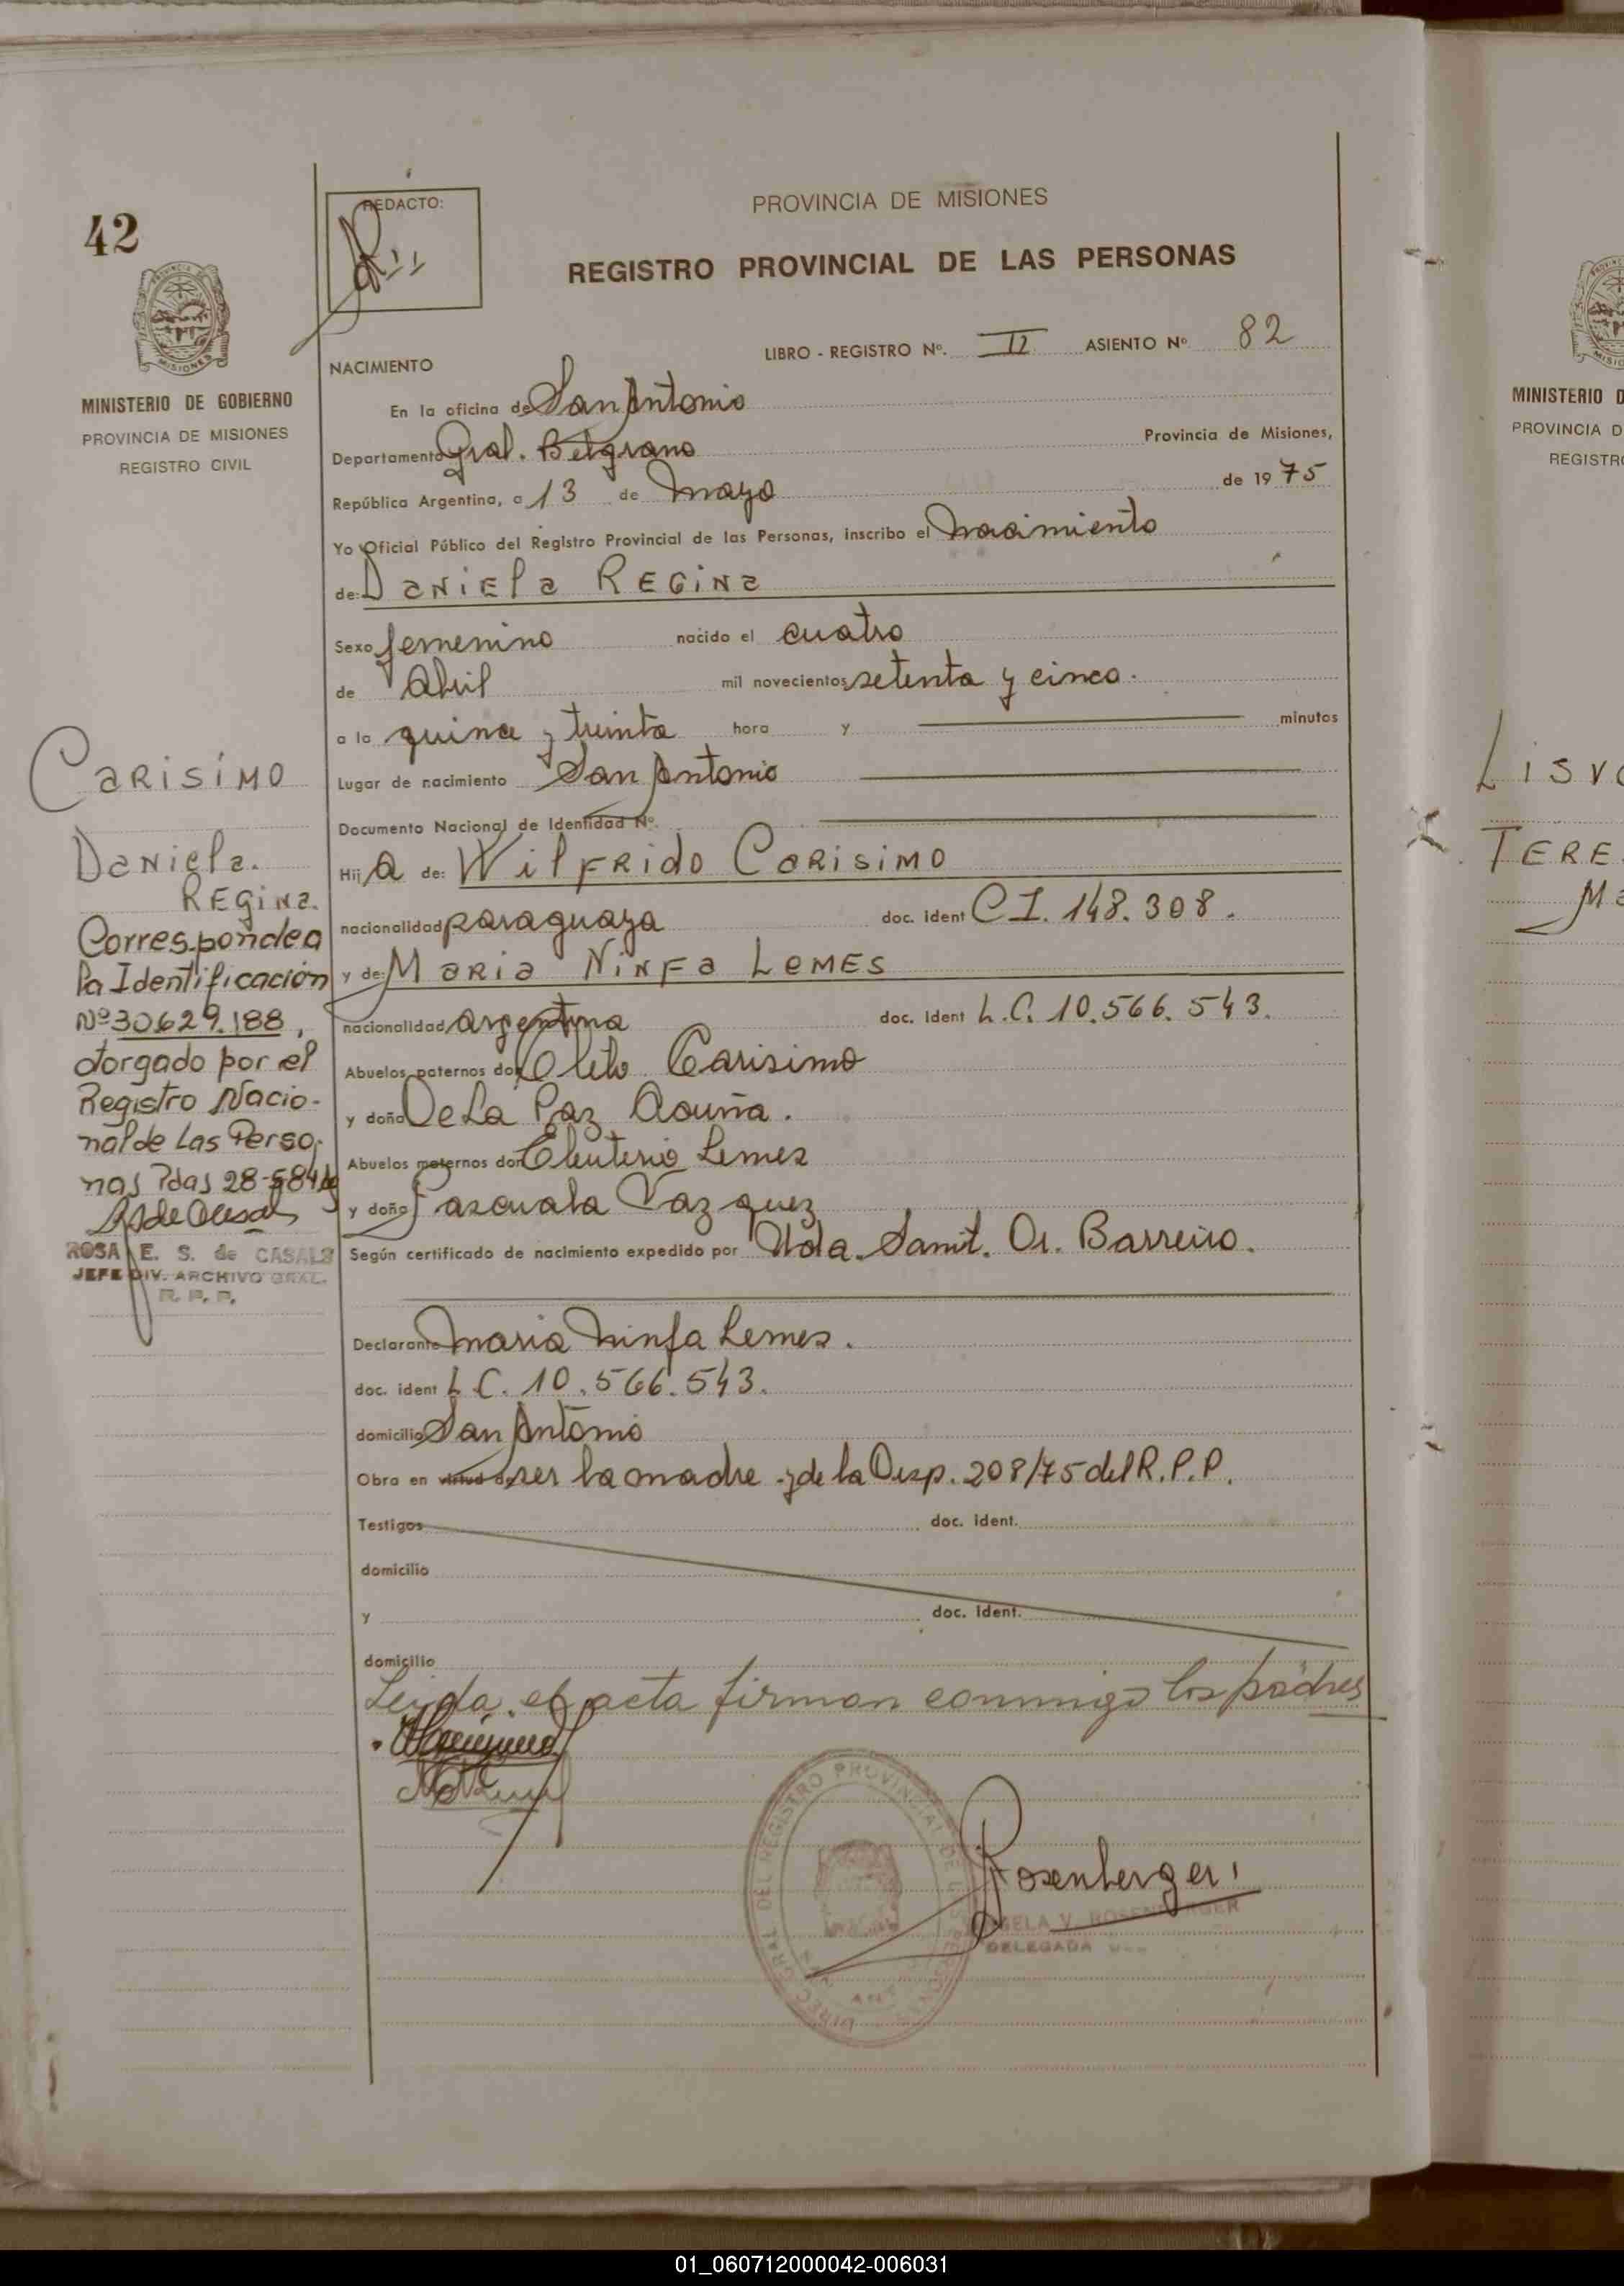 42
REDACTO:
PROVINCIA DE MISIONES
REGISTRO PROVINCIAL DE LAS PERSONAS
MINISTERIO DE GOBIERNO
PROVINCIA DE MISIONES
REGISTRO CIVIL
LIBRO - REGISTRO Nº. II ASIENTO Nº 82
NACIMIENTO
En la oficina de San Antonio
Departamento Gral. Belgrano Provincia de Misiones,
República Argentina, a 13 de mayo de 1975
Yo Oficial Público del Registro Provincial de las Personas, inscribo el nacimiento
de: DANIELA REGINA
Sexo femenino nacido el cuatro
de Abril mil novecientos setenta y cinco.
a la quince y treinta hora y minutos
Lugar de nacimiento San Antonio
Documento Nacional de Identidad Nº.
Hij a de: WILFRIDO CARISIMO
nacionalidad paraguaya doc. ident C I. 148.308.
y de: MARIA NINFA LEMES
nacionalidad argentina doc. Ident L.C. 10.566.543.
Abuelos paternos don Cleto Carisimo
y doña De La Paz Acuña.
Abuelos maternos don Eleuterio Lemes
y doña Pascuala Vazquez
Según certificado de nacimiento expedido por Unda. Sanit. Dr. Barreiro.
CARISIMO
DANIELA.
REGINA.
Corresponde a
la Identificación
Nº 30.629.188,
otorgado por el
Registro Nacio-
nal de Las Perso-
nas Pdas 28-5-84
ROSA E. S. de CASALS
JEFE DIV. ARCHIVO GRAL.
R. P. P.
Declarante Maria Ninfa Lemes.
doc. ident L C. 10.566.543.
domicilio San Antonio
Obra en virtud de ser la madre y de la Disp. 208/75 del R.P.P.
Testigos doc. ident.
domicilio
y doc. Ident.
domicilio
Leida el acta firman conmigo los padres
Rosenberger
ROSENBERGER
DELEGADA
LISV
TERE
MINISTERIO D
PROVINCIA D
REGISTR
01_060712000042-006031